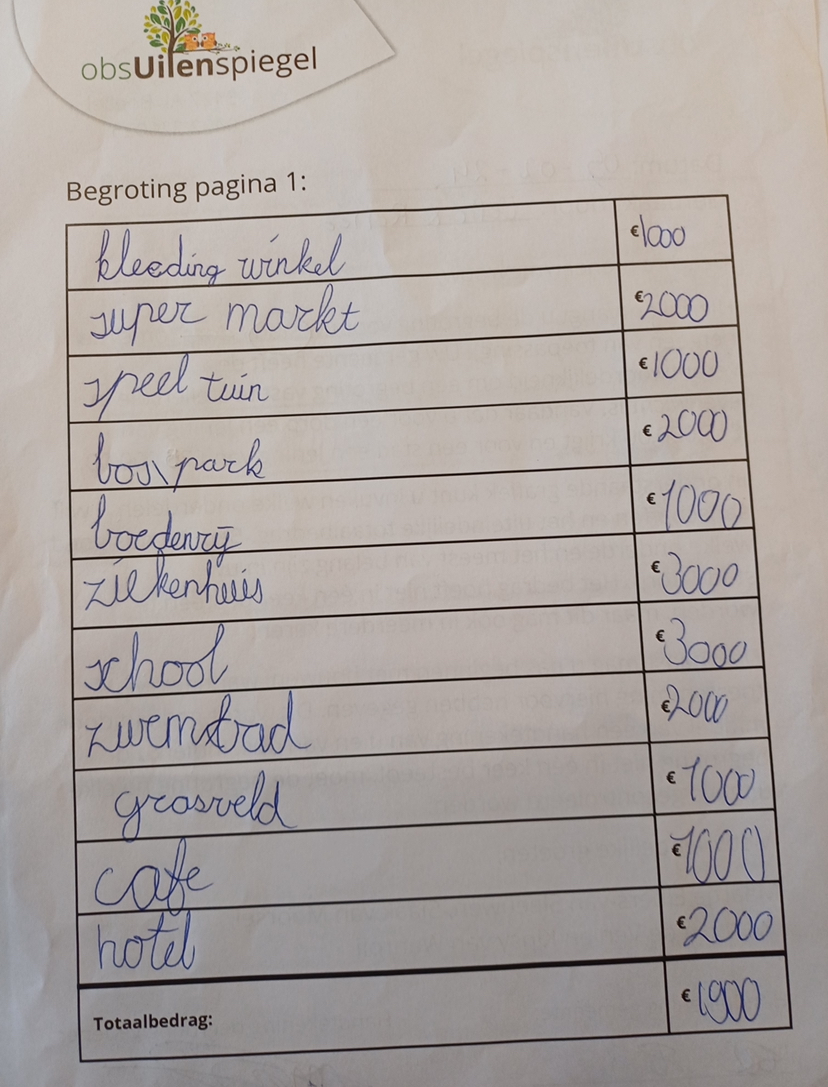 obsUilenspiegel
Begroting pagina 1:
kleeding winkel €1000
super markt €2000
speel tuin €1000
bos\park €2000
boedenrij €1000
ziekenhuis €3000
school €3000
zwembad €2000
grasveld €1000
cafe €1000
hotel €2000
Totaalbedrag: €1900